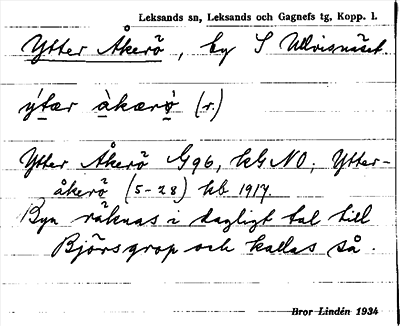 Leksands sn, Leksands och Gagnefs tg, Kopp. l.
Ytter Åkerö, by S Ullvisnäset.
ýtær àkærǫ̀ (r.)
Ytter Åkerö G96, kGNO; Ytter-
åkerö (5-28) kb 1917.
Byn räknas i dagligt tal till
Björsgrop och kallas så.
Bror Lindén 1934